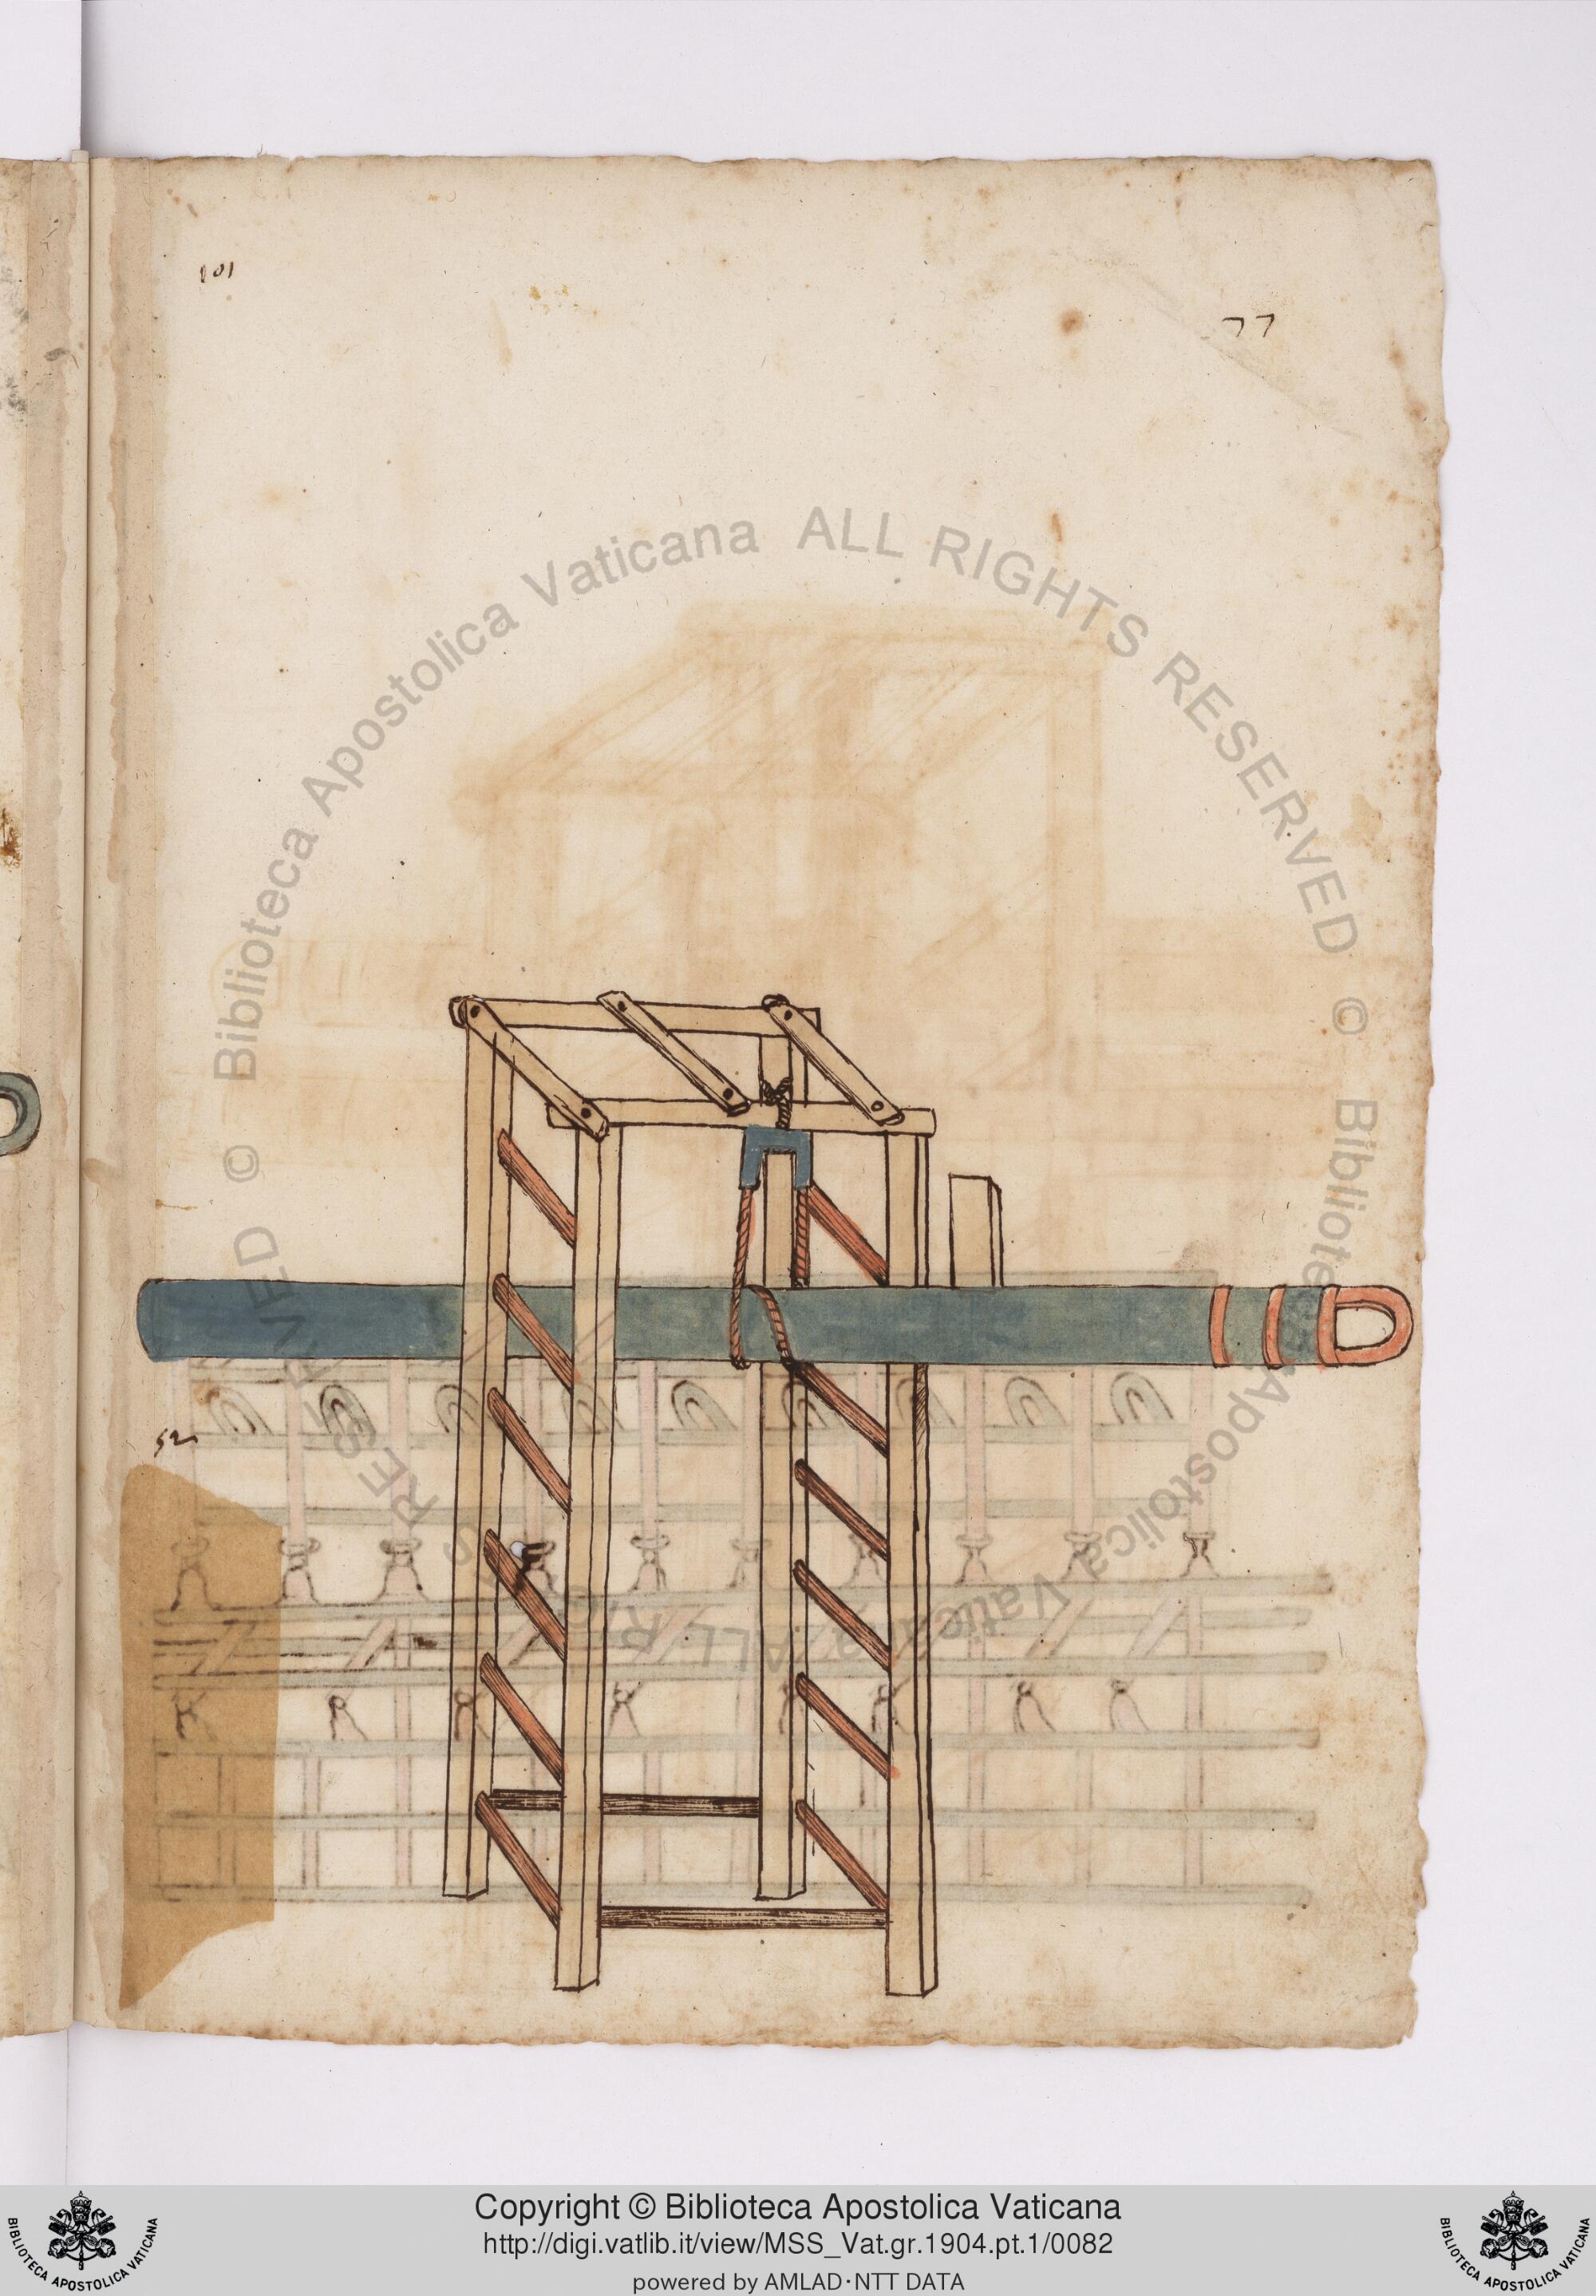 101
77
© Biblioteca Apostolica Vaticana ALL RIGHTS RESERVED
© Biblioteca Apostolica Vaticana ALL RIGHTS RESERVED
52
Copyright © Biblioteca Apostolica Vaticana
http://digi.vatlib.it/view/MSS_Vat.gr.1904.pt.1/0082
powered by AMLAD·NTT DATA
BIBLIOTECA APOSTOLICA VATICANA
BIBLIOTECA APOSTOLICA VATICANA